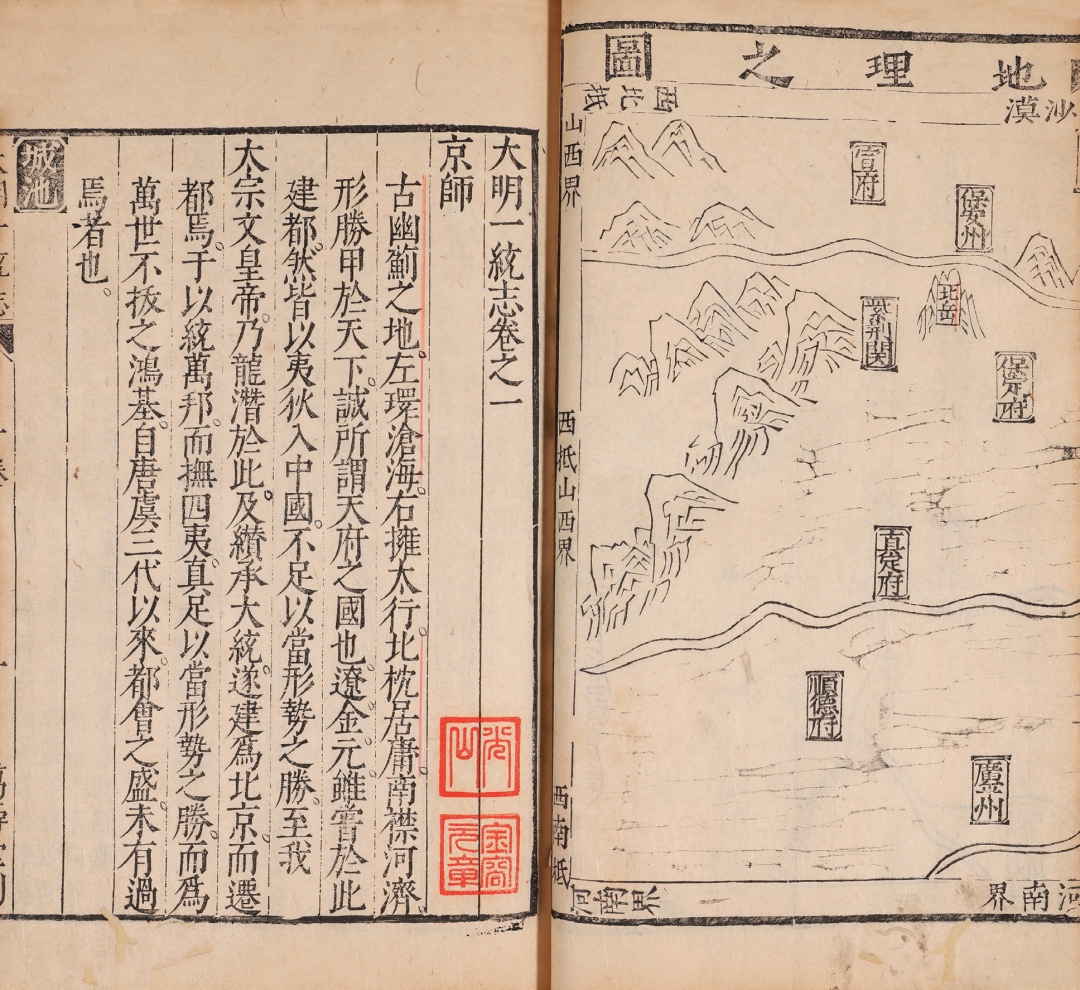 地理之圖
沙漠
西北抵
山西界
宣府
保安州
北岳
紫荊関
保定府
西抵山西界
真定府
順德府
西南抵
河南界
河南界
大明一統志卷之一
京師
古幽薊之地。左環滄海。右擁太行。北枕居庸。南襟河濟
形勝甲於天下。誠所謂天府之國也。遼金元雖嘗於此
建都。然皆以夷狄入中國。不足以當形勢之勝。至我
太宗文皇帝。乃龍潛於此。及纘承大統。遂建爲北京。而遷
都焉。于以統萬邦。而撫四夷。真足以當形勢之勝。而爲
萬世不拔之鴻基。自唐虞三代以來。都會之盛。未有過
焉者也。
城池